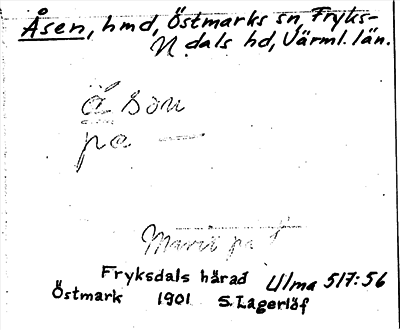 Åsen, hmd, Östmarks sn, Fryks-
N. dals hd, Värml. län.
å son
på —
Fryksdals härad Ulma 517:56
Östmark 1901 S. Lagerlöf